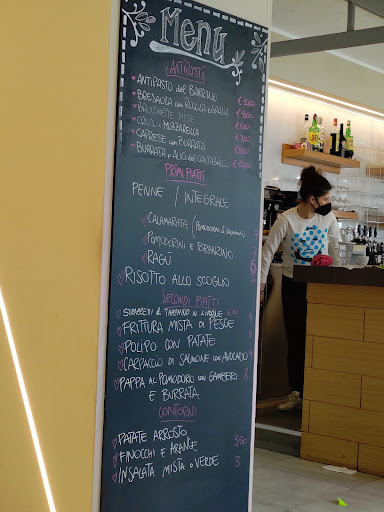 Menu
ANTIPASTI
ANTIPASTO del BARRINO
BRESAOLA con RUCOLA e GRANA
BRUSCHETTE MISTE
COTTO e MOZZARELLA
CAPRESE con BURRATA
BURRATA e ALICI del CANTABRICO
PRIMI PIATTI
PENNE / INTEGRALE
CALAMARATA (POMODORINI E CALAMARI)
POMODORINI E PEPERINCINO
RAGÙ
RISOTTO ALLO SCOGLIO
SECONDI PIATTI
FRITTURA MISTA DI PESCE
POLIPO CON PATATE
CARPACCIO DI SALMONE CON AVOCADO
PAPPA AL POMODORO CON GAMBERI 8
E BURRATA
CONTORNI
PATATE ARROSTO 3,50
FINOCCHI E ARANCE 5
INSALATA MISTA O VERDE 3